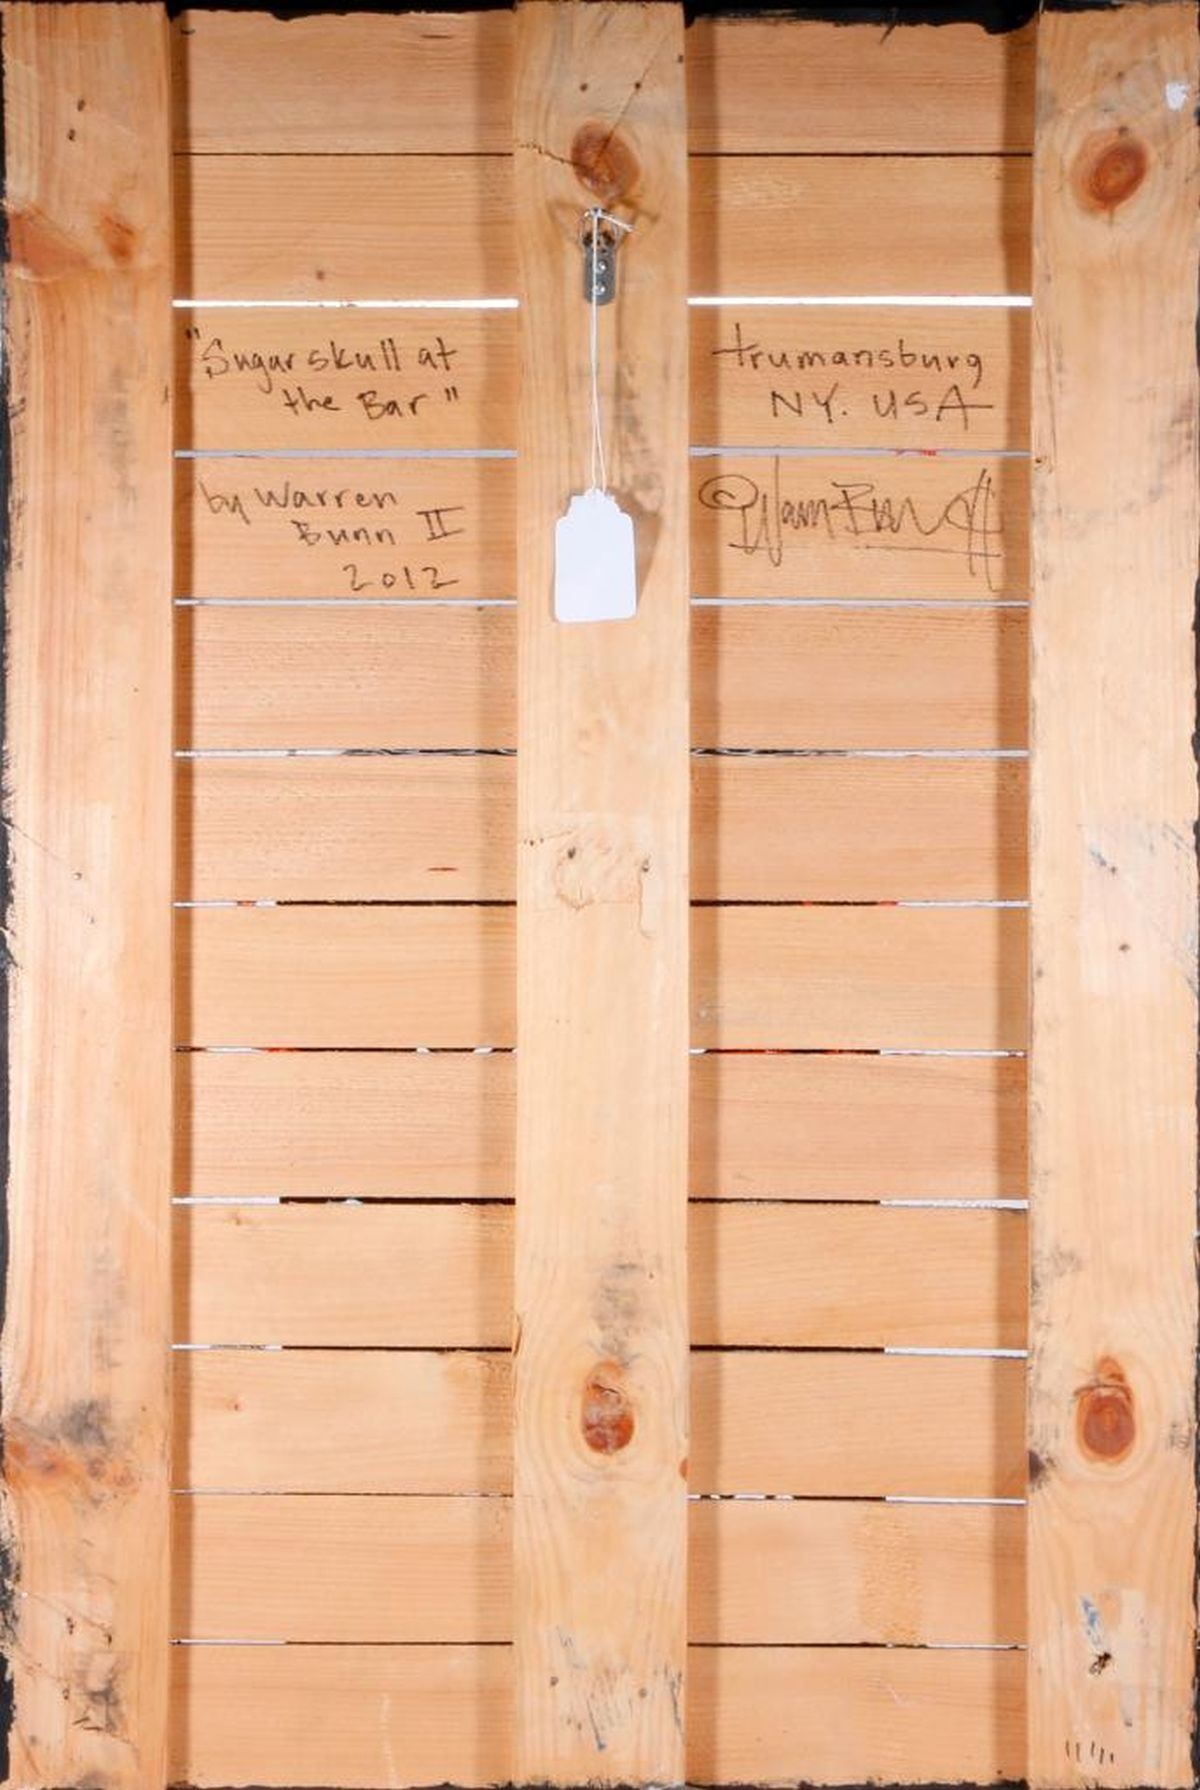 "Sugar skull at
the Bar"
by Warren
Bunn II
2012
trumansburg
NY. USA
©